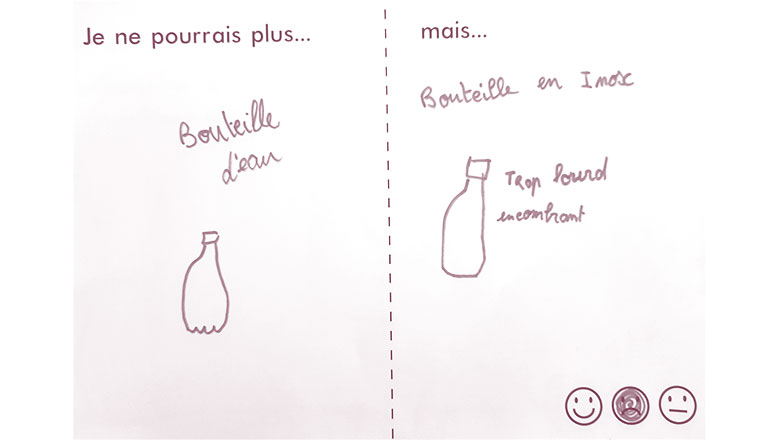 Je ne pourrais plus...
Bouteille
d'eau
mais...
Bouteille en Inox
Trop lourd
encombrant